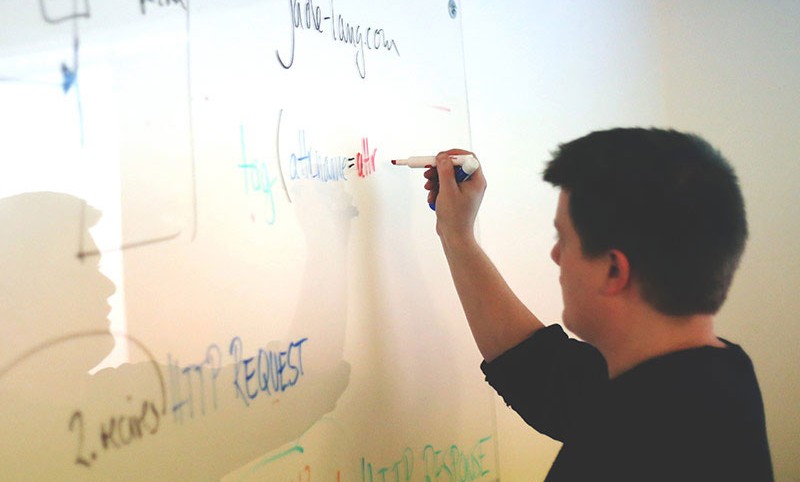 jade-lang.com
tag(attrname=attr
2. recives HTTP REQUEST
HTTP RESPONSE